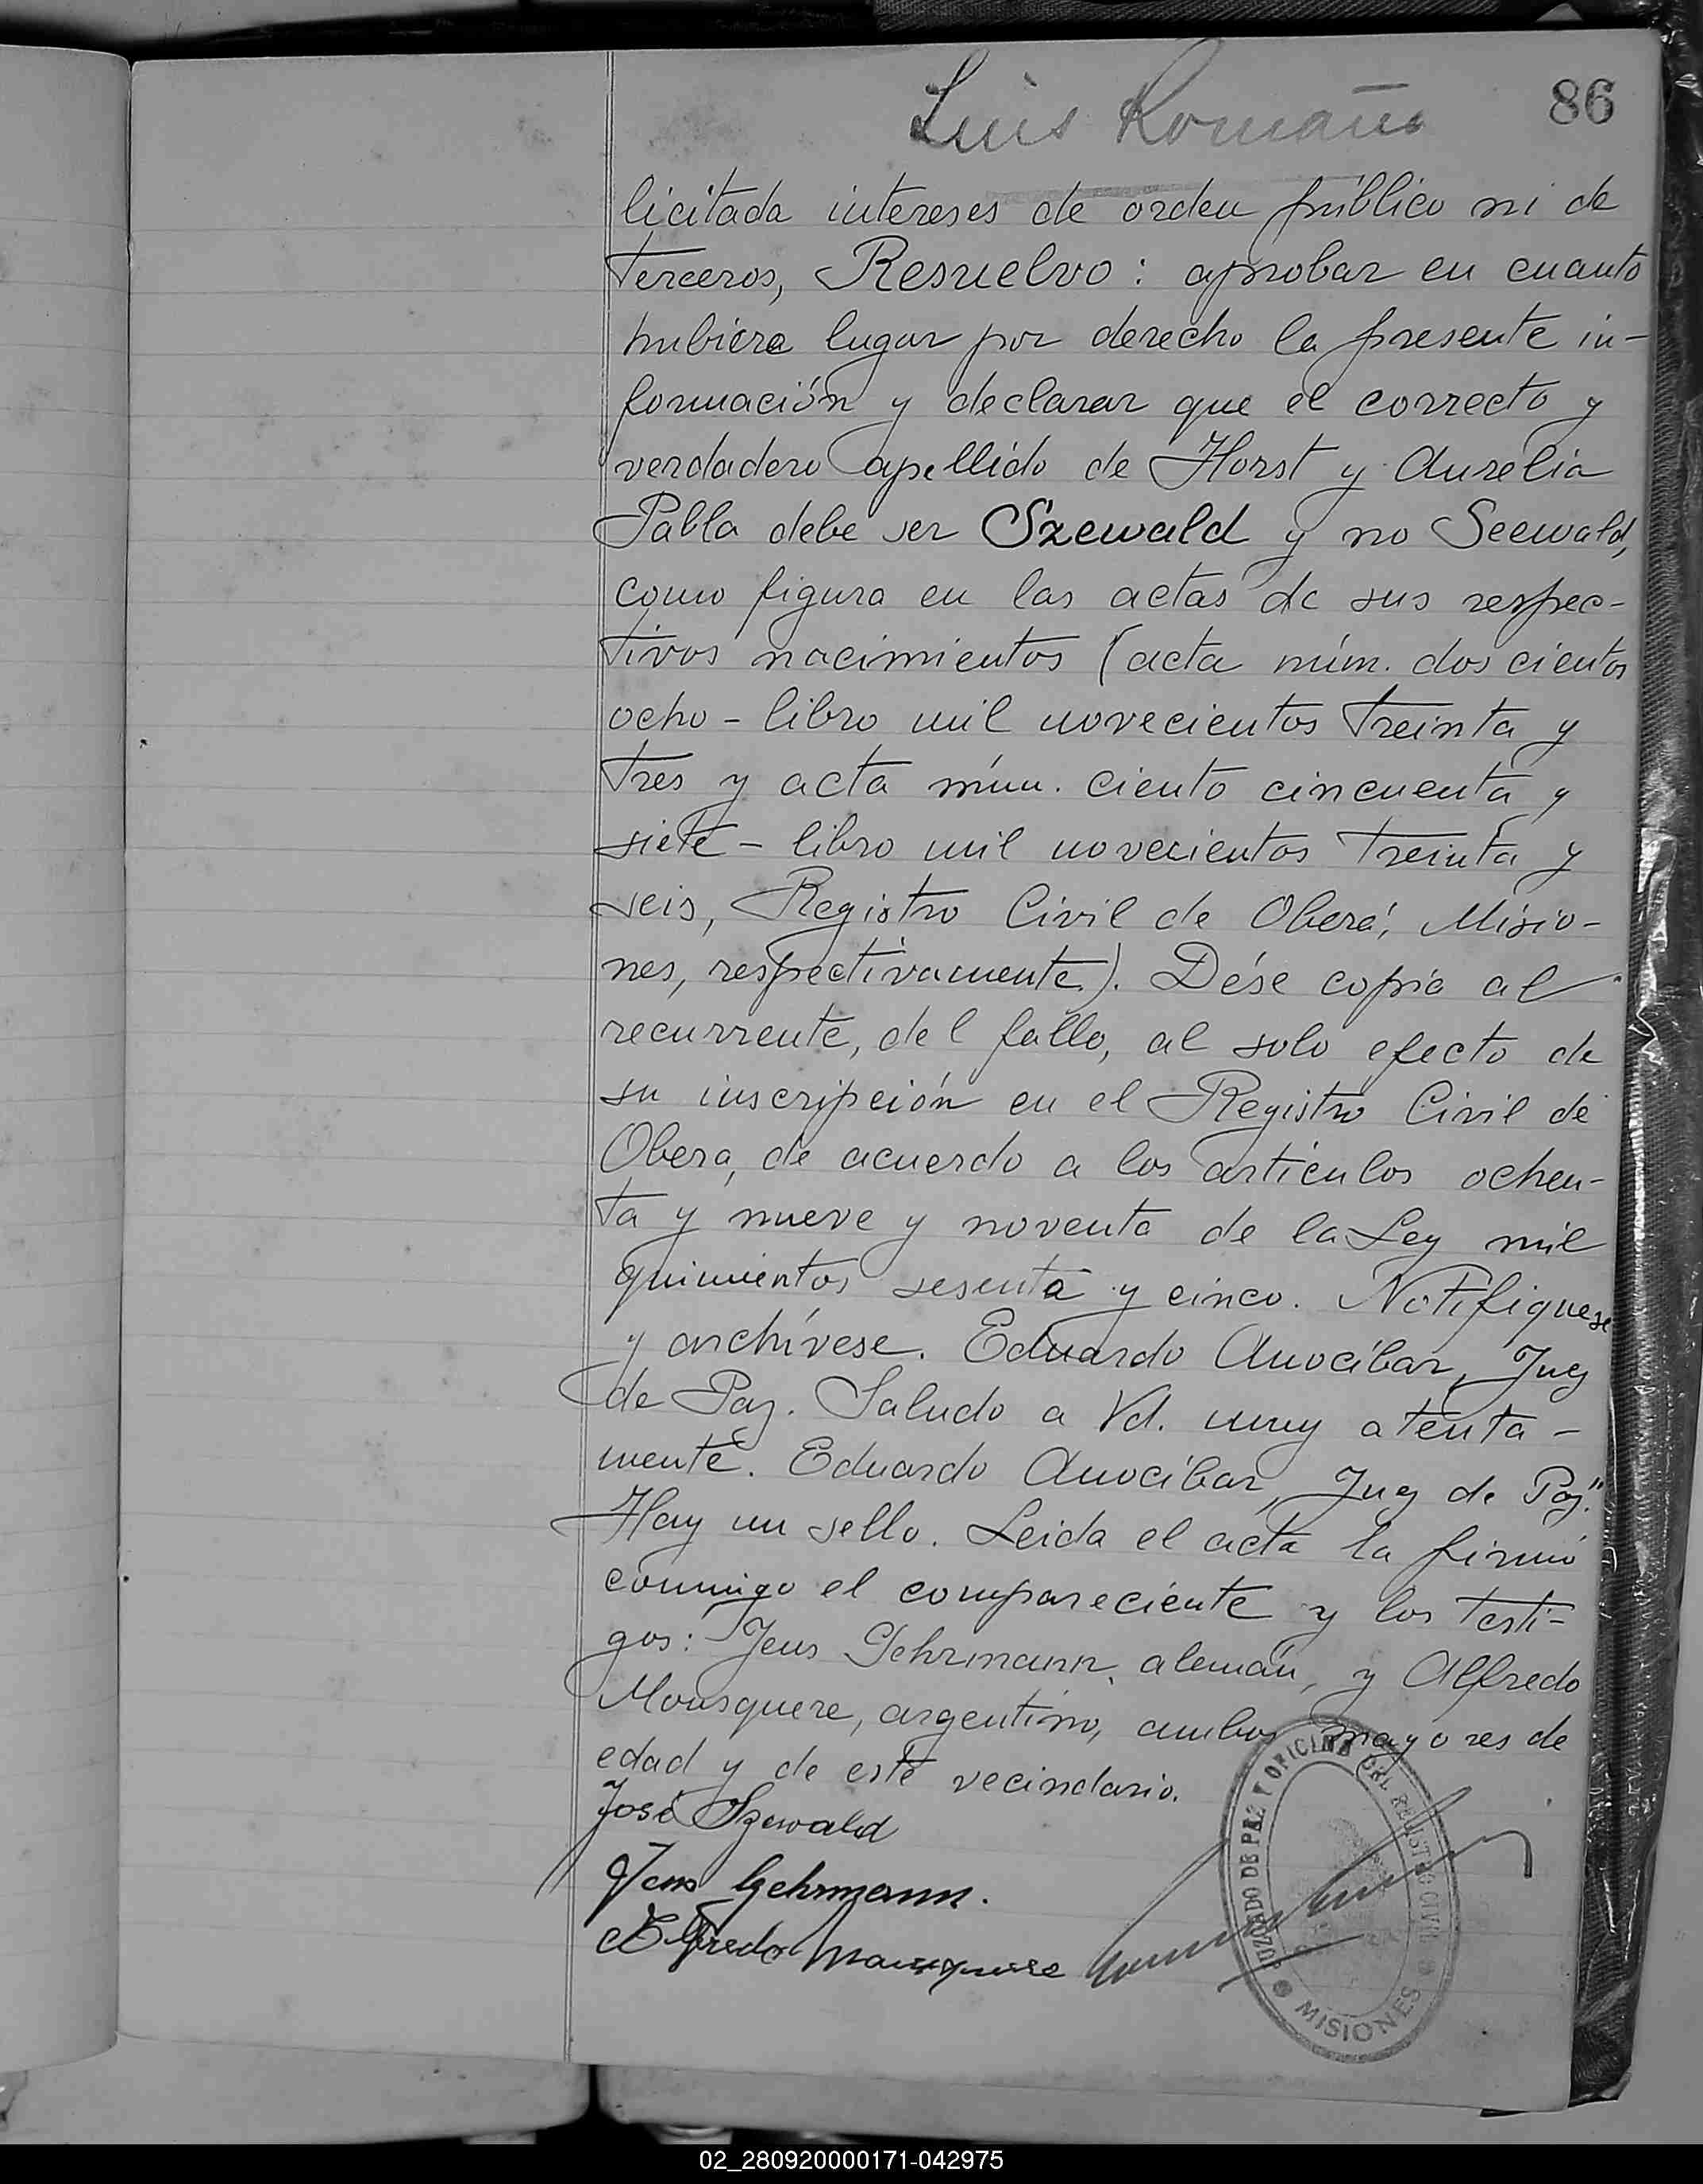 Luis Romano
86
licitada intereses de orden público ni de
terceros, Resuelvo: aprobar en cuanto
hubiere lugar por derecho la presente in-
formación y declarar que el correcto y
verdadero apellido de Horst y Aurelia
Pabla debe ser Szewald y no Seewald,
como figura en las actas de sus respec-
tivos nacimientos (acta núm. dos cientos
ocho - libro mil novecientos treinta y
tres y acta núm. ciento cincuenta y
siete - libro mil novecientos treinta y
seis, Registro Civil de Oberá, Misio-
nes, respectivamente). Dése copia al
recurrente, del fallo, al solo efecto de
su inscripción en el Registro Civil de
Obera, de acuerdo a los artículos ochen-
ta y nueve y noventa de la Ley mil
quinientos sesenta y cinco. Notifiquese
y archívese. Eduardo Anocíbar, Juez
de Paz. Saludo a Vd. muy atenta-
mente. Eduardo Anocíbar, Juez de Paz."
Hay un sello. Leida el acta la firmó
conmigo el compareciente y los testi-
gos: Jens Gehrmann, alemán, y Alfredo
Mousquere, argentino, ambos mayores de
edad y de este vecindario.
José Szewald
Jens Gehrmann.
Alfredo Mousquere
JUZGADO DE PAZ Y OFICINA DEL REGISTRO CIVIL
MISIONES
02_280920000171-042975